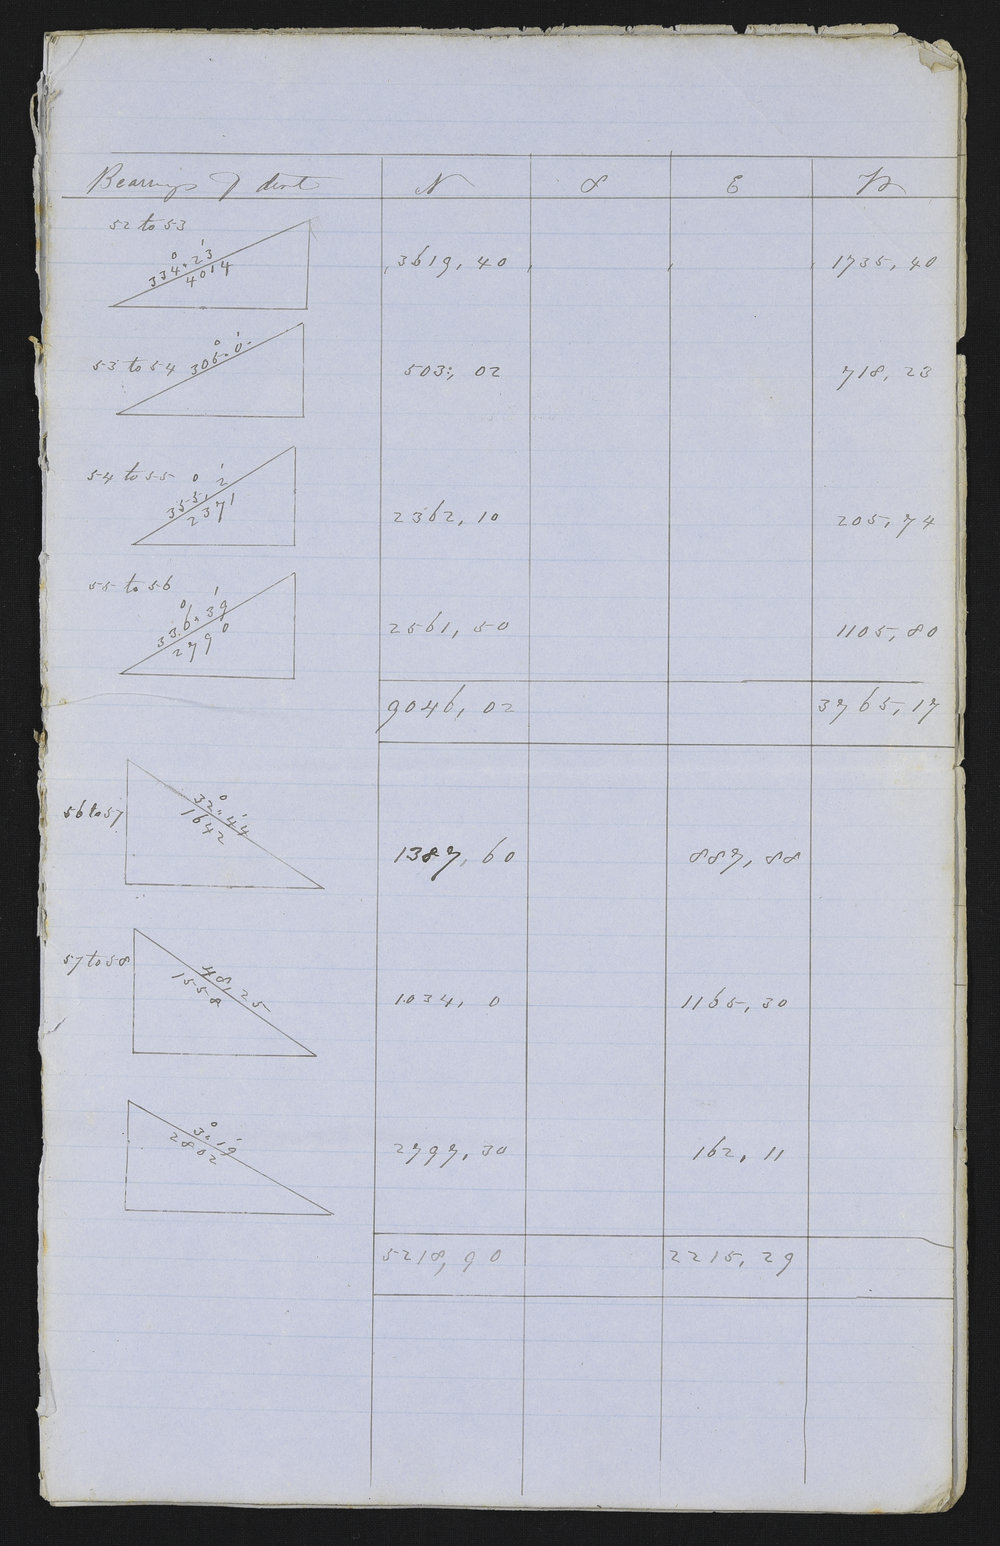 Bearings & dist N S E W
52 to 53
334° 23'
4014
3619, 40 1735, 40
53 to 54 306° 0'
503, 02 718, 23
54 to 55
355° 2'
2371
2362, 10 205, 74
55 to 56
336° 39'
2790
2561, 50 1105, 80
9046, 02 3765, 17
56 to 57
32° 44'
1642
1387, 60 887, 88
57 to 58
48, 25
1558
1034, 0 1165, 30
3° 19'
2802
2797, 30 162, 11
5218, 90 2215, 29